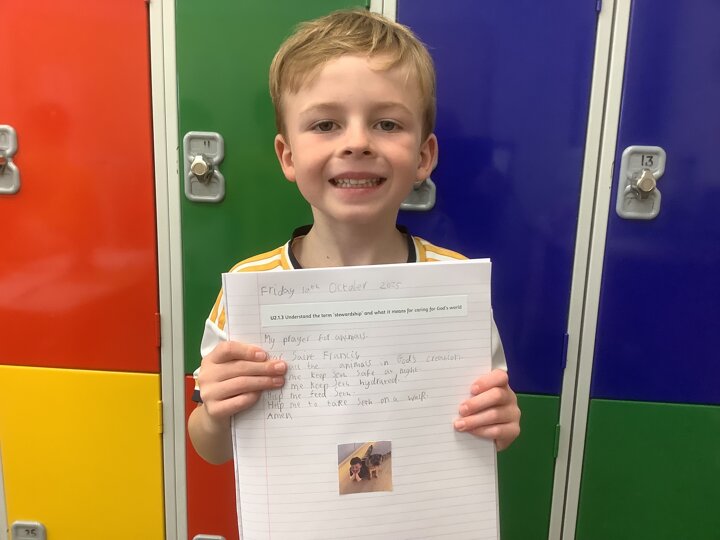 Friday 10th October 2025
U2.1.3 Understand the term 'stewardship' and what it means for caring for God's world
My prayer for animals.
Saint Francis,
all the animals in God's creation.
me keep Seth safe at night
me keep Seth hydrated.
Help me feed Seth.
Help me to take Seth on a walk.
Amen
11
13